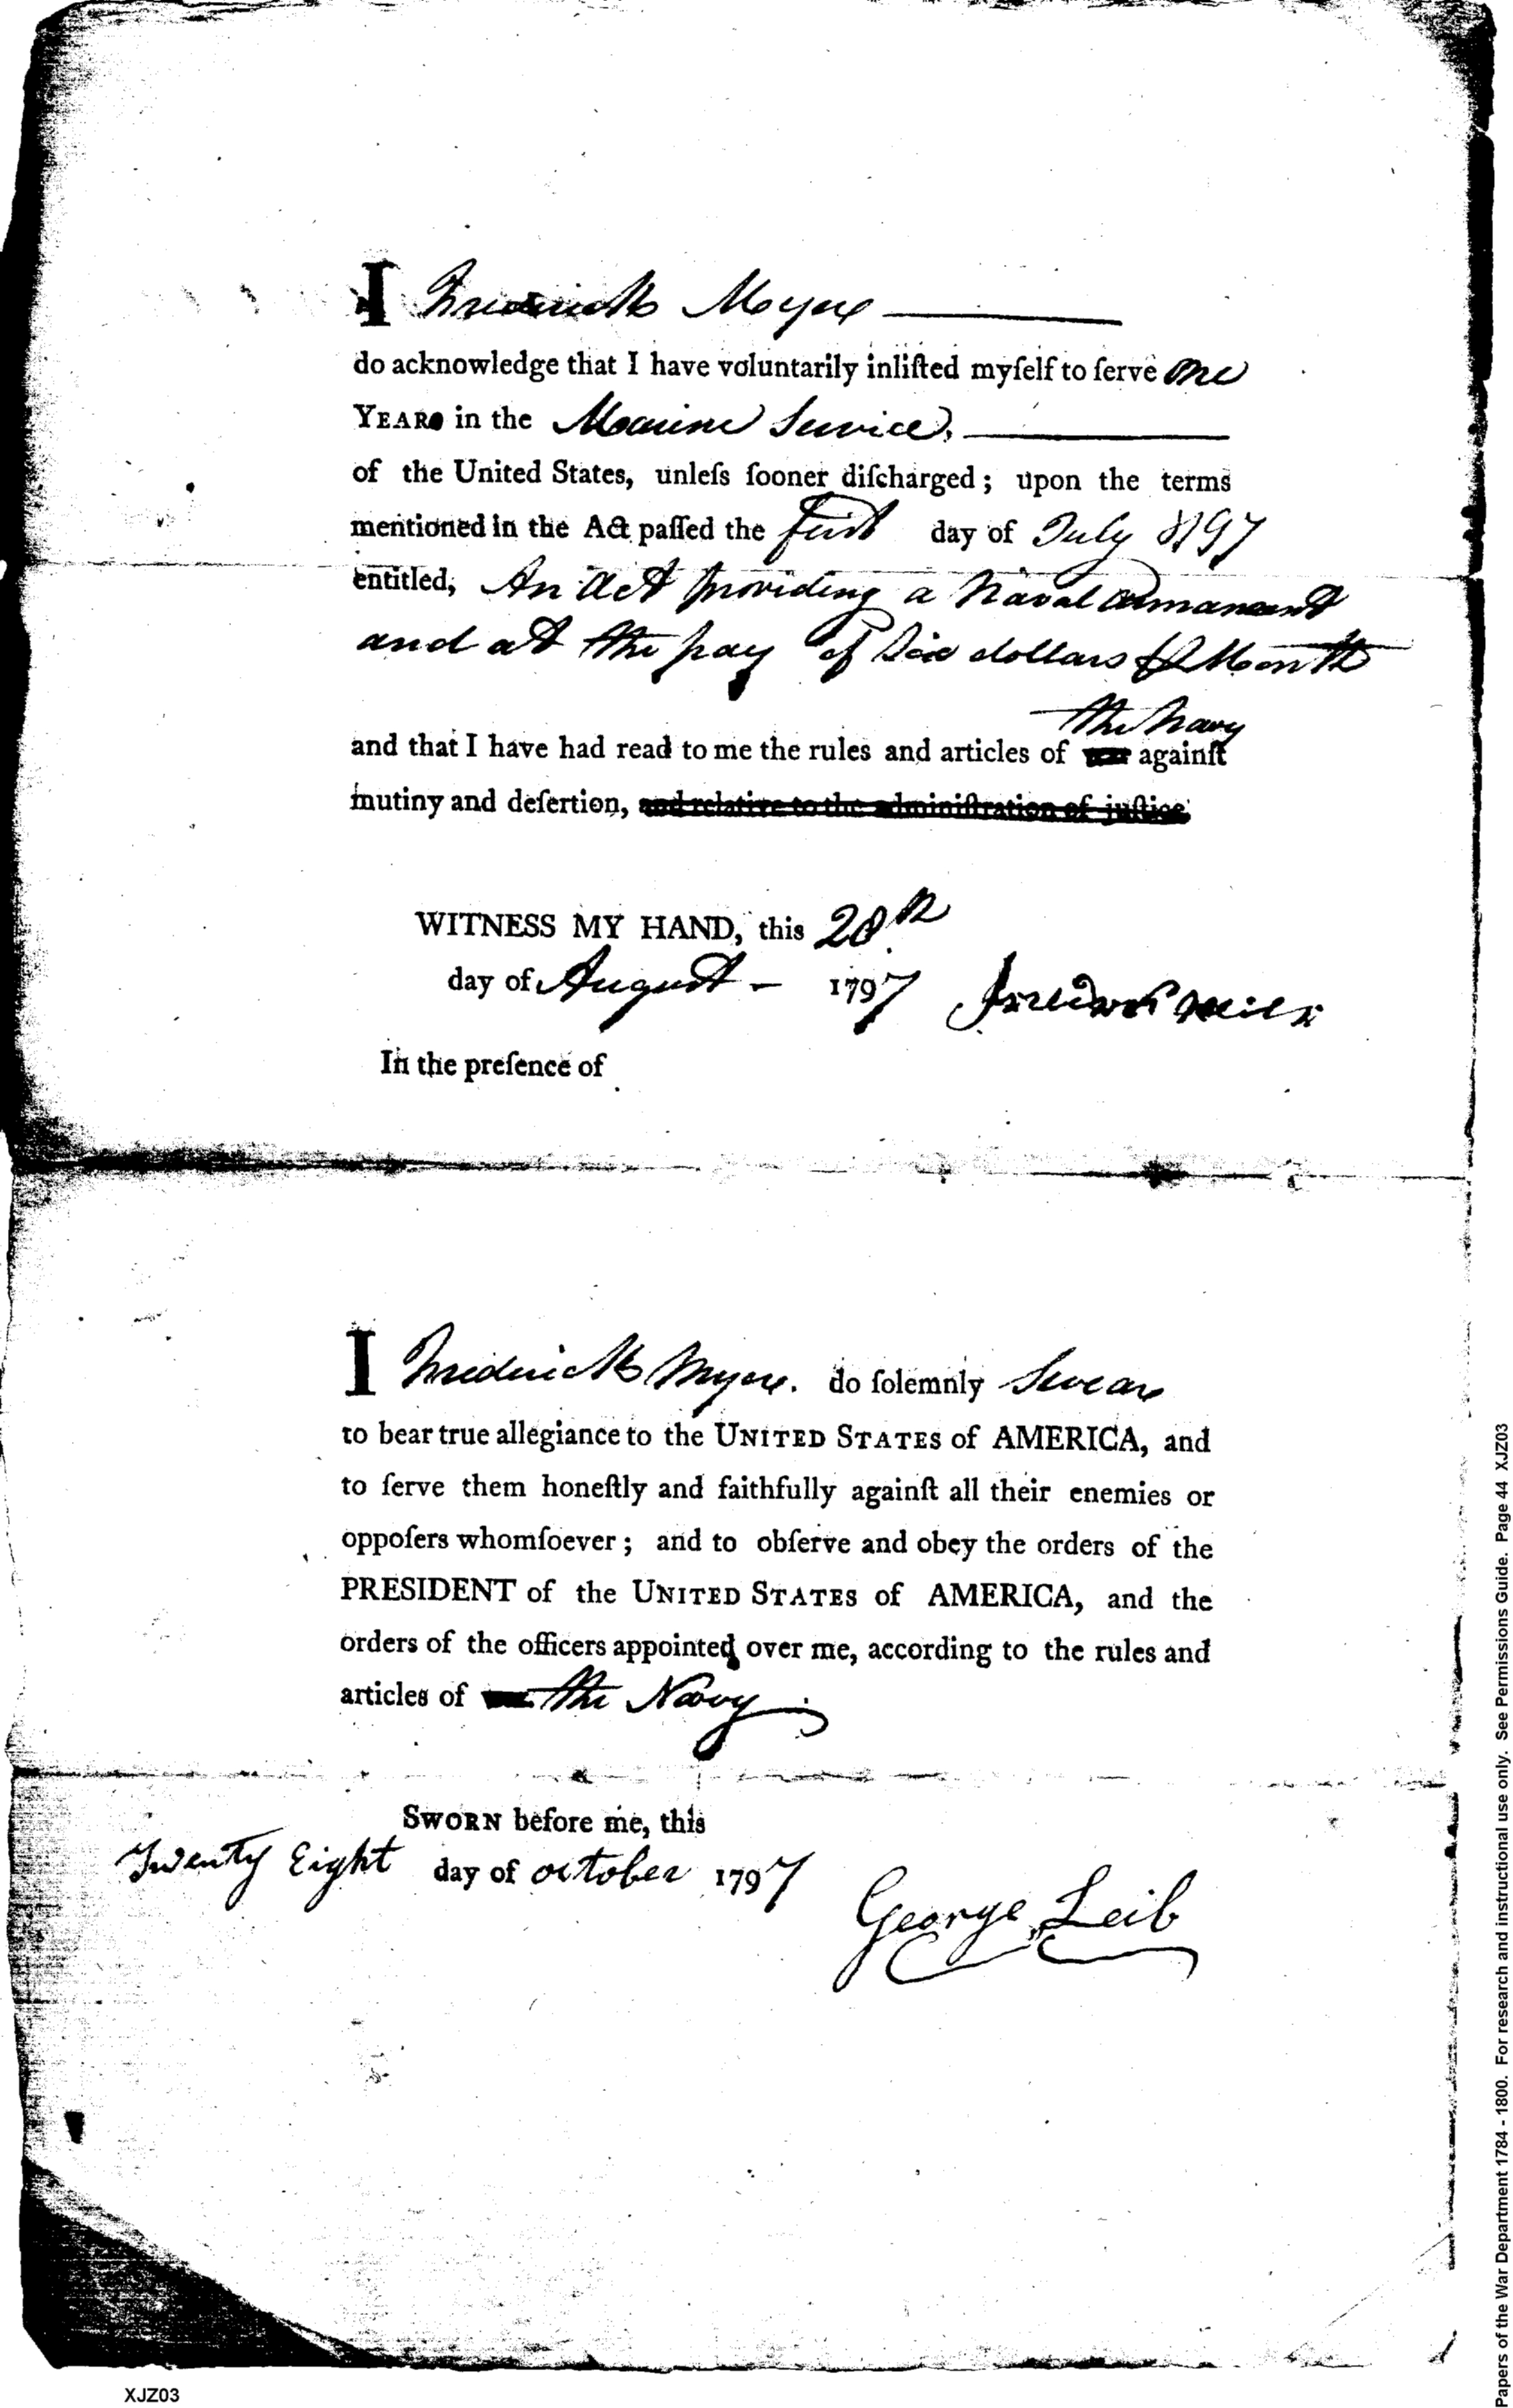 I Frederick Moyer
do acknowledge that I have voluntarily inliſted myſelf to ſerve one
YEARS in the Marine Service,
of the United States, unleſs ſooner diſcharged; upon the terms
mentioned in the Act paſſed the first day of July 1797
entitled, An Act providing a Naval armament
and at the pay of Six dollars ⅌ Month
the Navy
and that I have had read to me the rules and articles of war againſt
mutiny and deſertion, and relative to the adminiſtration of juſtice
WITNESS MY HAND, this 28th
day of August - 1797
In the preſence of
I Frederick Myer. do ſolemnly Swear
to bear true allegiance to the UNITED STATES of AMERICA, and
to ſerve them honeſtly and faithfully againſt all their enemies or
oppoſers whomſoever; and to obſerve and obey the orders of the
PRESIDENT of the UNITED STATES of AMERICA, and the
orders of the officers appointed over me, according to the rules and
articles of war the Navy
SWORN before me, this
Twenty Eight day of october 1797
George Leib
XJZ03
Papers of the War Department 1784 - 1800. For research and instructional use only. See Permissions Guide. Page 44 XJZ03